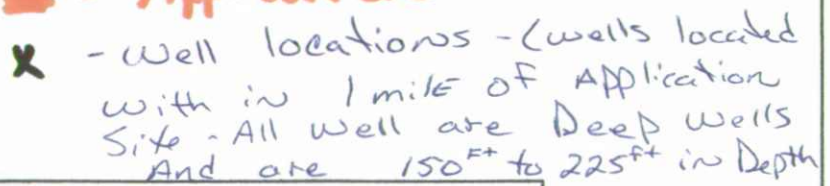 x - Well locations - (wells located
with in 1 mile of Application
Site - All Well are Deep Wells
And are 150 Ft to 225 ft in Depth